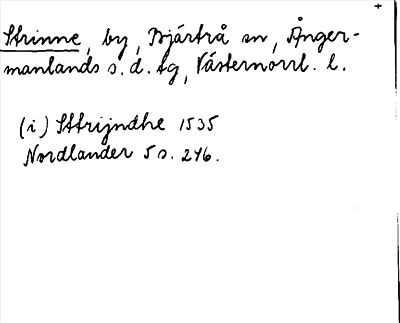 Strinne, by, Bjärtrå sn, Ånger-
manlands s. d. tg, Västernorrl. l.
(i) Strijndhe 1535
Nordlander 5 s. 246.